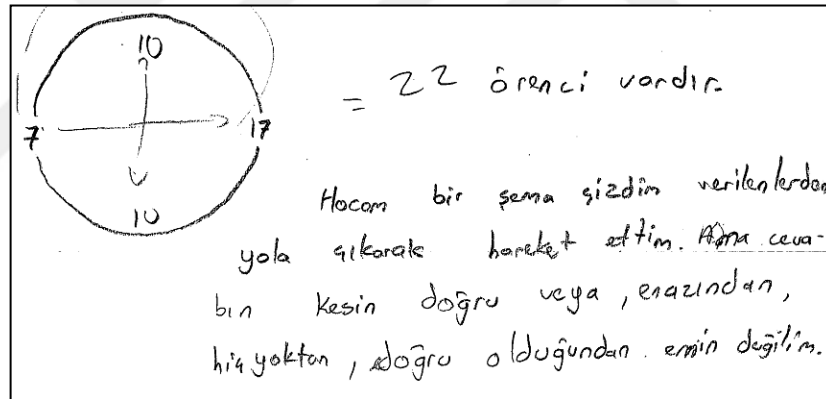 10
7
17
10
= 22 örenci vardır.
Hocam bir şema çizdim verilenlerden
yola çıkarak hareket ettim. Ama ceva-
bın kesin doğru veya, enazından,
hiç yoktan, doğru olduğundan emin değilim.